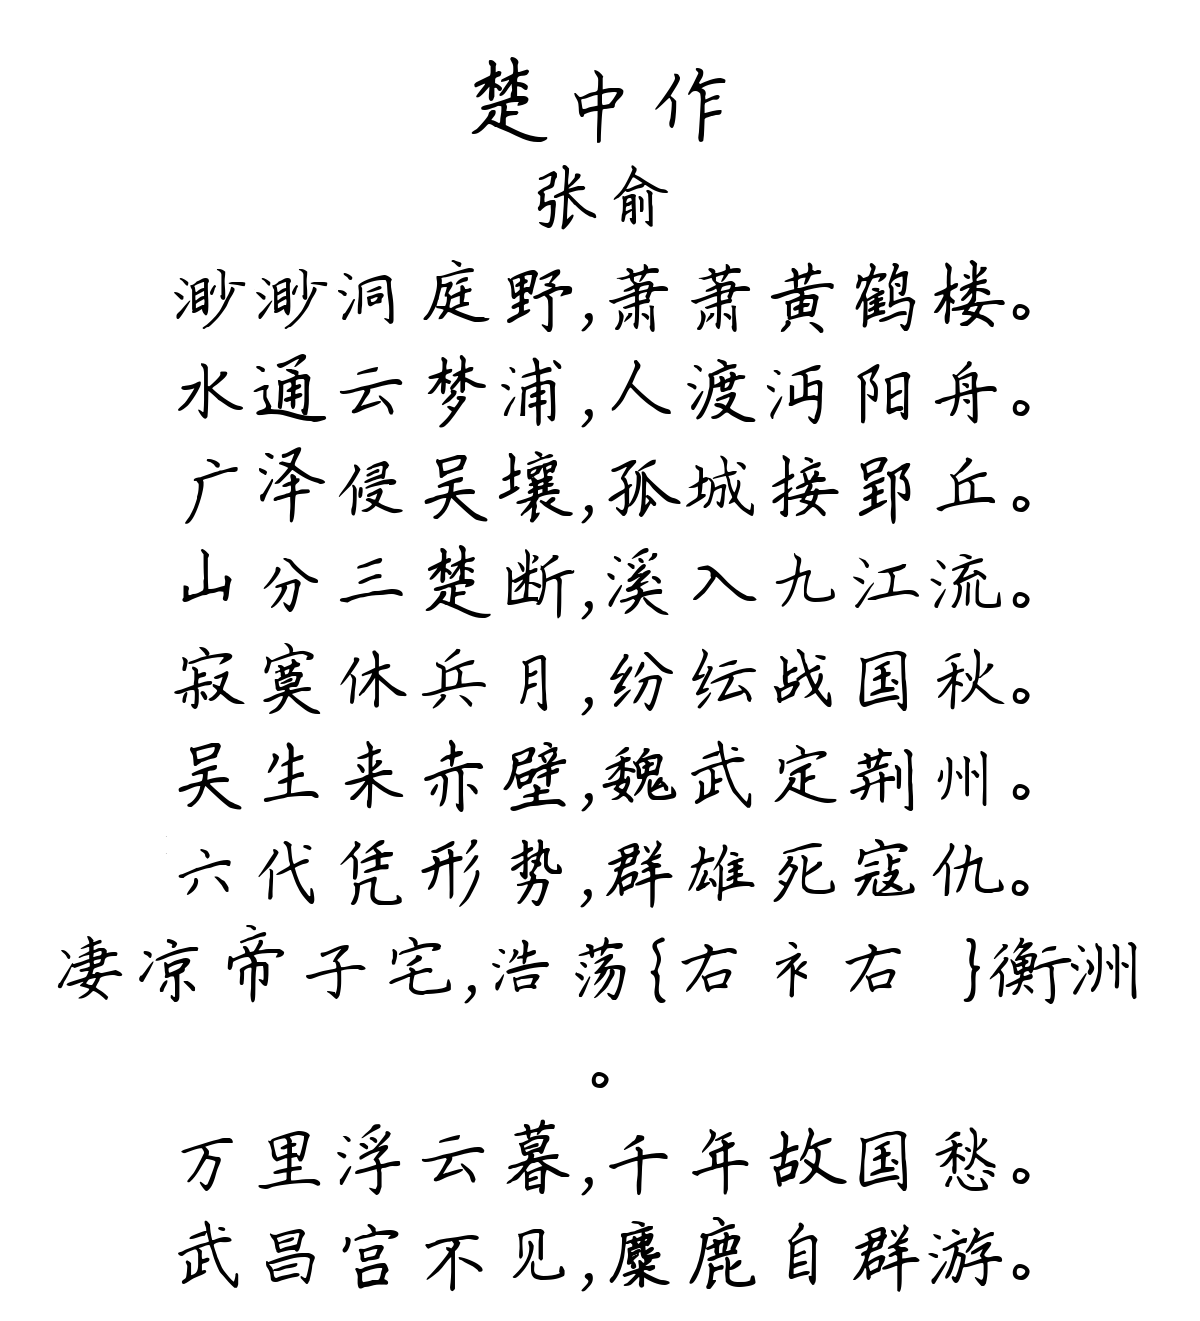 楚中作
张俞
渺渺洞庭野,萧萧黄鹤楼。
水通云梦浦,人渡沔阳舟。
广泽侵吴壤,孤城接郢丘。
山分三楚断,溪入九江流。
寂寞休兵月,纷纭战国秋。
吴生来赤壁,魏武定荆州。
六代凭形势,群雄死寇仇。
凄凉帝子宅,浩荡{右礻右 }衡洲
。
万里浮云暮,千年故国愁。
武昌宫不见,麋鹿自群游。